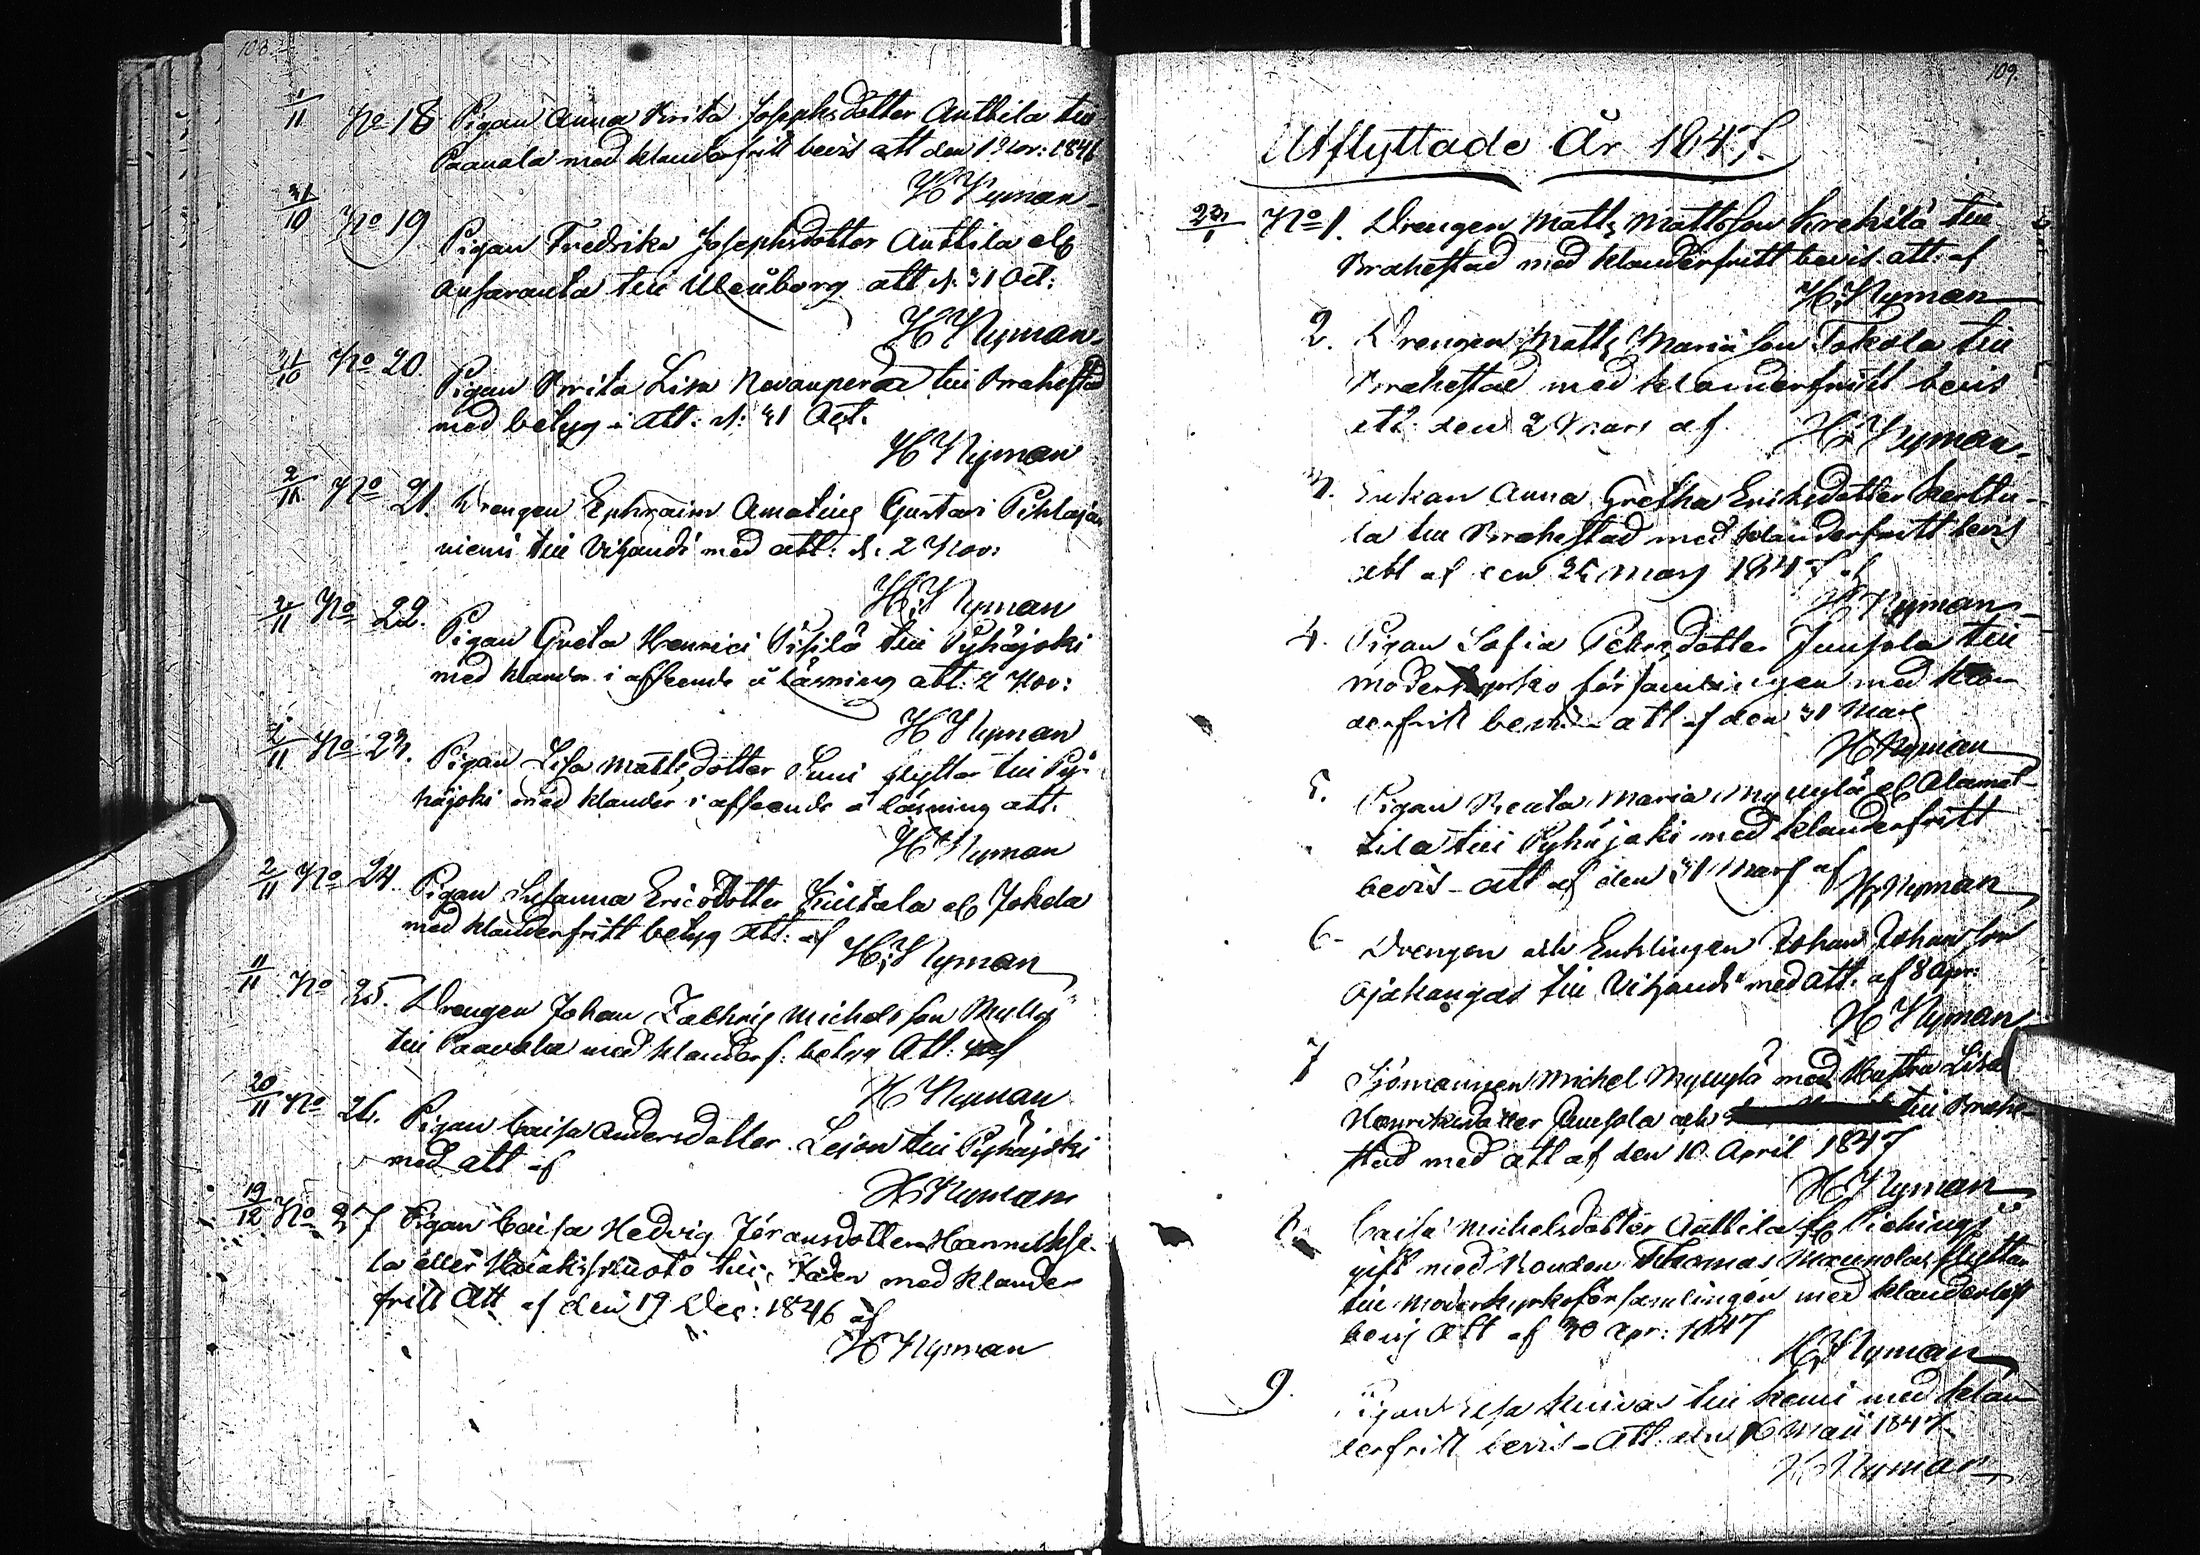 108.
1/11 No 18 Pigan Anna Brita Josephsdotter Anttila till
Paavola med klanderfritt bevis att den 1 Nov: 1846
H Nyman
31/10 No 19 Pigan Fredrika Josephsdotter Anttila elr
Ansaranta till Uleåborg att d. 31 Oct:
H Nyman
31/10 No 20 Pigan Brita Lisa Navanperä till Brahestad
med betyg i Att: d: 31 Oct.
H Nyman
2/11 No 21. Drengen Ephraim Amatius Gustav Pihlaja
niemi till Vihandi med att: d. 2 Nov:
H: Nyman
2/11 No 22. Pigan Greta Henrici Pisilä till Pyhäjoki
med klander i afseende å läsning att: 2 Nov:
H Nyman
2/11 No 23. Pigan Lisa Mattsdotter Suni flyttar till Py-
häjoki med klander i afseende å läsning att.
H Nyman
2/11 No 24. Pigan Susanna Ericsdotter Kiiltala elr Jokela
med klanderfritt betyg att: af
H: Nyman
11/11 No 25. Drengen Johan Zachris Michelsson Mylly
till Paavola med klanderf. betyg Att: af
H Nyman
20/11 No 26. Pigan Caisa Andersdotter Lejon till Pyhäjoki
med att af
H: Nyman
19/12 No 27 Pigan Caisa Hedvig Jöransdotter Hannukse-
la eller till med klander
fritt Att af den 19 Dec: 1846 af
H Nyman
109.
Utflyttade År 1847.
23/1 No 1. Drengen Matts Mattsson Krekilä till
Brahestad med klanderfritt bevis att: af
H: Nyman
2. Drengen Matts Mariä Son Tokola till
Brahestad med klanderfritt bevis
att: den 2 Mars af
H: Nyman
3. Enkan Anna Gretha Eriksdotter Kerttu-
la till Brahestad med klanderfritt bevis
att af den 26 Mars 1847 af
H Nyman
4. Pigan Sofia Petersdotter Junsola till
moderkyrko församlingen med klan
derfritt bevis att af den 31 Mars
H Nyman
5. Pigan Beata Maria Myllylä elr Alamat-
tila till Pyhäjoki med klanderfritt
bevis - att af den 31 Mars af
H: Nyman
6. Drengen och Enklingen Johan Johansson
Ojakangas till Vihandi med att. af 8 Apr:
H Nyman
7 Sjömannen Michel Myllylä med Hustru Lisa
Henriksdotter Junsola och till Brahe-
stad med att af den 10 April 1847
H: Nyman
8. Caisa Michelsdotter Anttila fr Piehingi
gift med Bonden Thomas Maunola flyttar
till Moderkyrkoförsamlingen med klanderlöst
bevis att af 30 Apr: 1847
H: Nyman
9. Pigan Lisa Kuivas till Kemi med klan
derfritt bevis - Att: den 6 Maji 1847.
H: Nyman